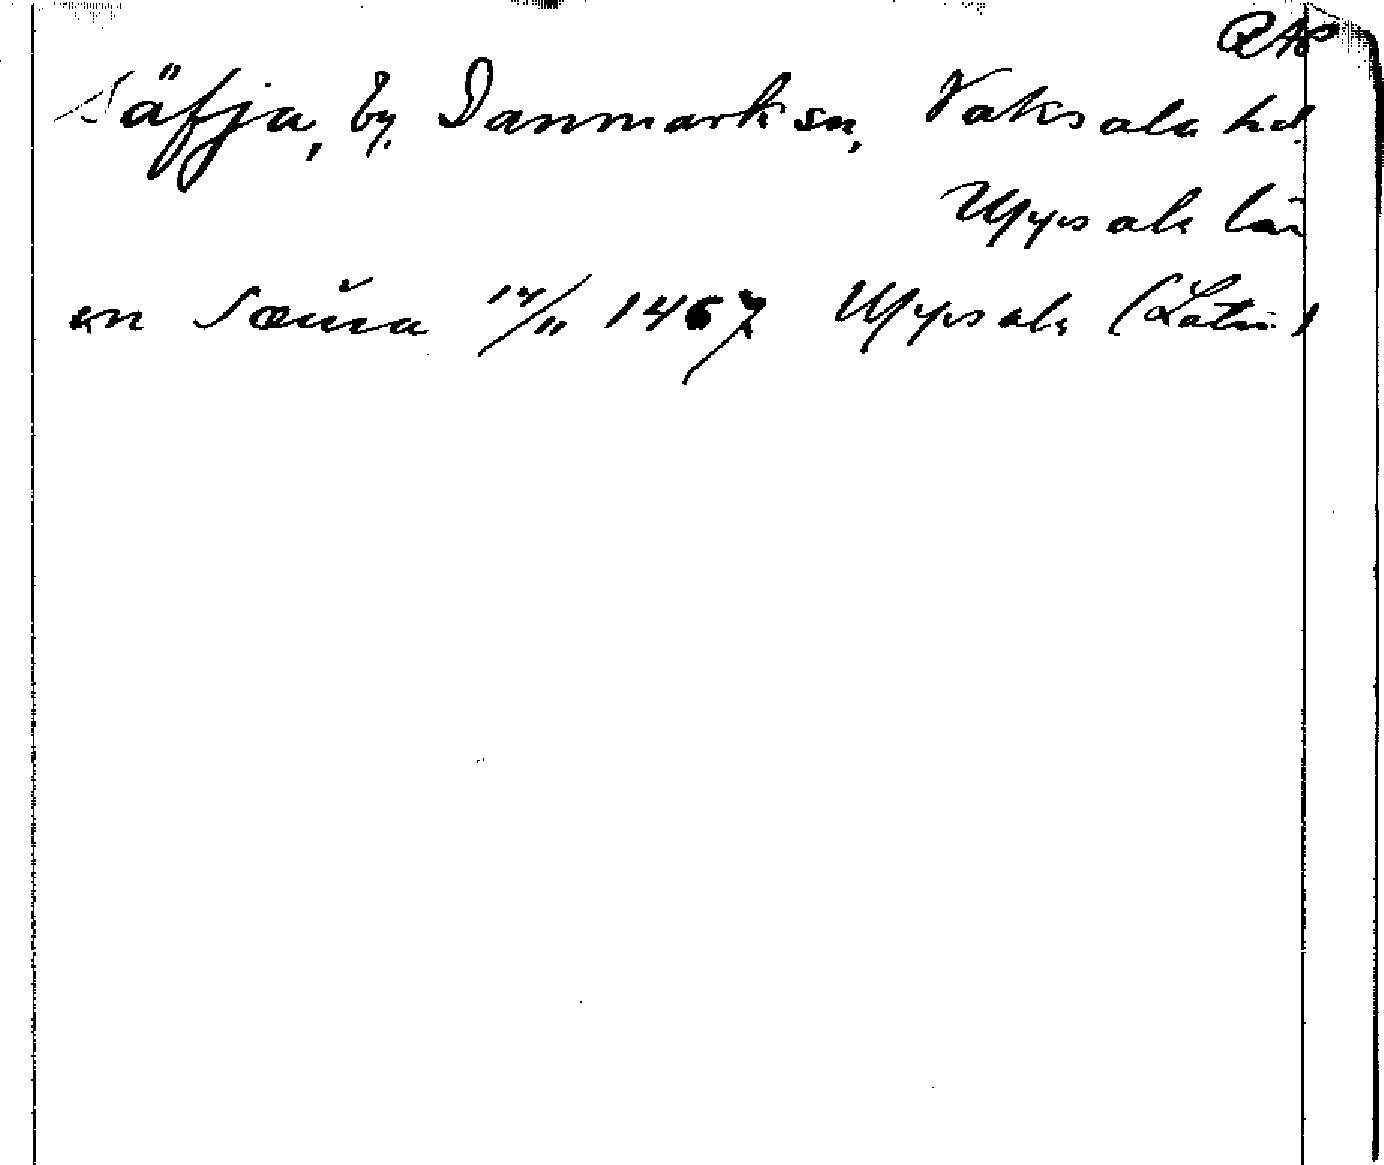 RAP
Säfja, by, Danmark sn, Vaksala hd
Uppsala län
en Sæuia 14/11 1467 Uppsala (Latin)